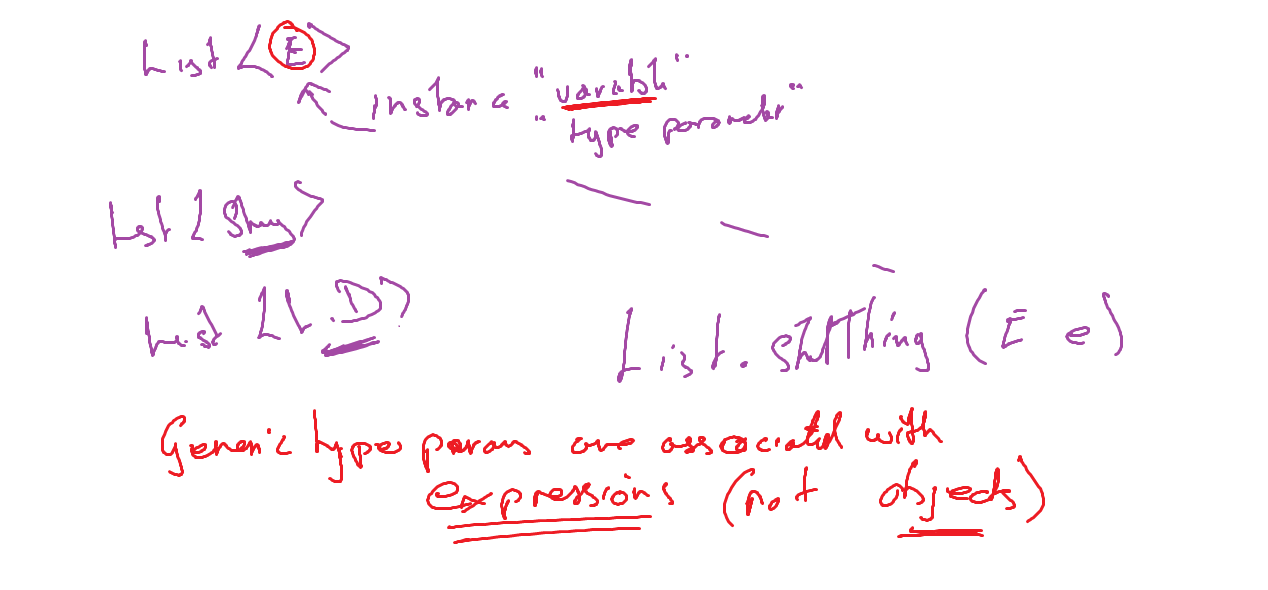 List <E>
instan a "variable"
"type parameter"
List <String>
List <L.D>
List.staticThing (E e)
Generic type params are associated with
expressions (not objects)